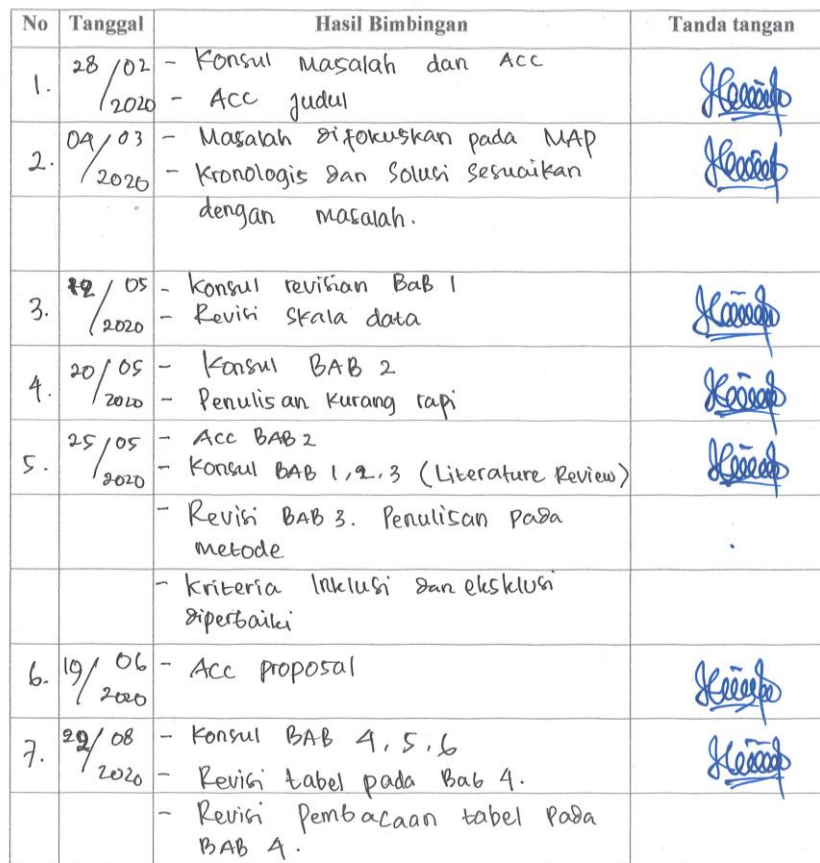 No Tanggal Hasil Bimbingan Tanda tangan
1. 28/02 - Konsul Masalah dan Acc
2020 - Acc judul
2. 04/03 - Masalah difokuskan pada MAP
2020 - Kronologis dan Solusi Sesuaikan
dengan masalah.
3. /05 - Konsul revisian BaB 1
2020 - Revisi Skala data
4. 20/05 - Konsul BAB 2
2020 - Penulisan Kurang rapi
5. 25/05 - Acc BAB 2
2020 - Konsul BAB 1, 2, 3 (Literature Review)
- Revisi BAB 3. Penulisan pada
metode
- Kriteria Inklusi dan eksklusi
diperbaiki
6. 19/06 - Acc proposal
2020
7. /08 - Konsul BAB 4, 5, 6
2020 - Revisi tabel pada Bab 4.
- Revisi Pembacaan tabel pada
BAB 4.